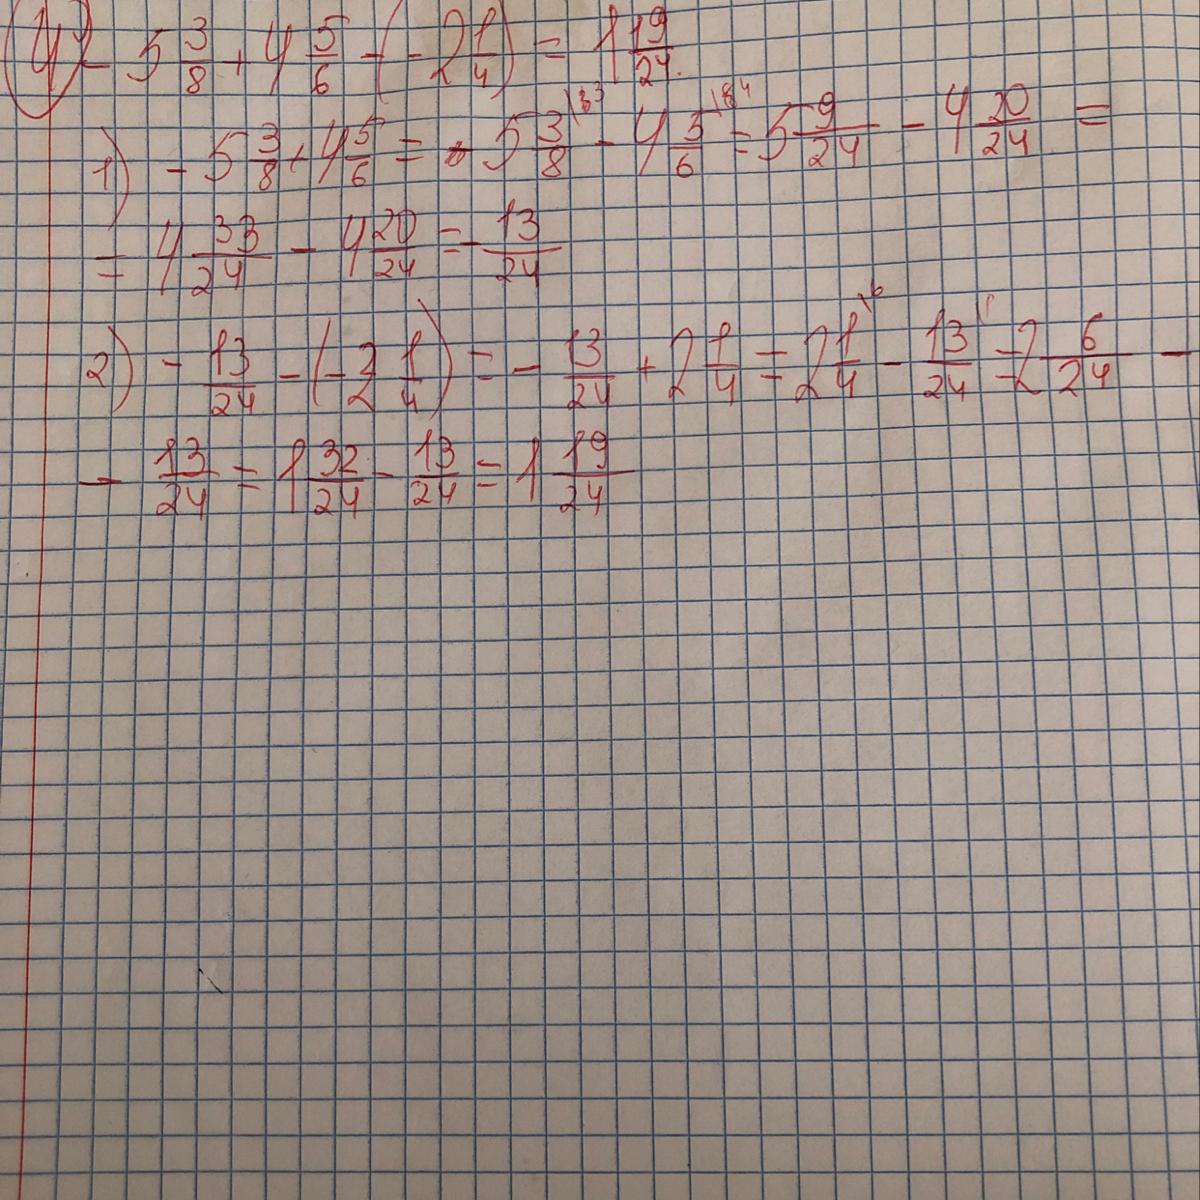 4) - 5 3/8 + 4 5/6 - (- 2 1/4) = 1 19/24
1) - 5 3/8 + 4 5/6 = - 5 3/8 - 4 5/6 = 5 9/24 - 4 20/24 =
= 4 33/24 - 4 20/24 = - 13/24
2) - 13/24 - (- 2 1/4) = - 13/24 + 2 1/4 = 2 1/4 \6 - 13/24 \1 = 2 6/24 -
- 13/24 = 1 32/24 - 13/24 = 1 19/24